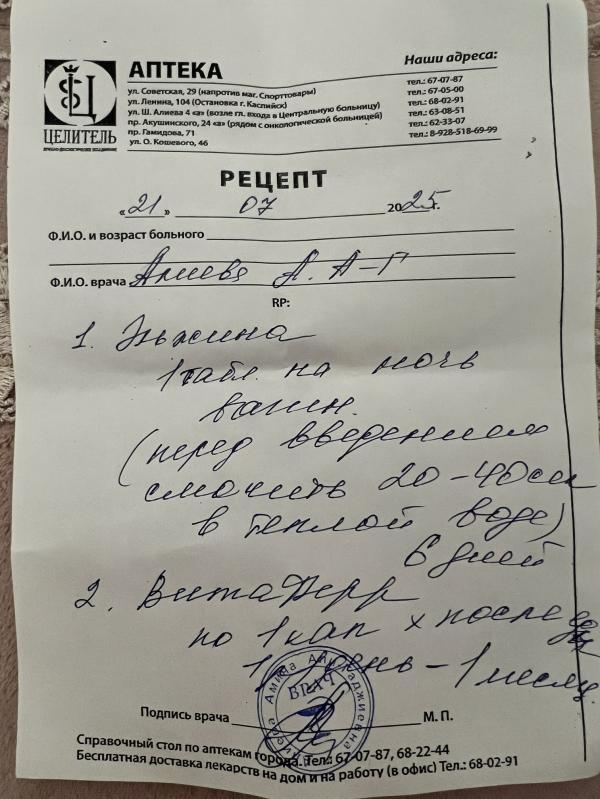 Наши адреса:
АПТЕКА
ЦЕЛИТЕЛЬ
ул. Советская, 29 (напротив маг. Спорттовары) тел.: 67-07-87
ул. Ленина, 104 (Остановка г. Каспийск) тел.: 67-05-00
ул. Ш. Алиева 4 «а» (возле гл. входа в Центральную больницу) тел.: 68-02-91
пр. Акушинского, 24 «а» (рядом с онкологической больницей) тел.: 63-08-51
пр. Гамидова, 71 тел.: 62-33-07
ул. О. Кошевого, 46 тел.: 8-928-518-69-99
РЕЦЕПТ
«21» 07 2025г.
Ф.И.О. и возраст больного
Ф.И.О. врача Алиева А. А-Г
RP:
1. Эльжина
1 табл. на ночь
вагин.
(перед введением
смочить 20-40 сек
в теплой воде)
6 дней
2. ВитаФерр
по 1 кап х после еды
1 р день - 1 месяц
ВРАЧ
Подпись врача М. П.
Справочный стол по аптекам города. Тел.: 67-07-87, 68-22-44
Бесплатная доставка лекарств на дом и на работу (в офис) Тел.: 68-02-91